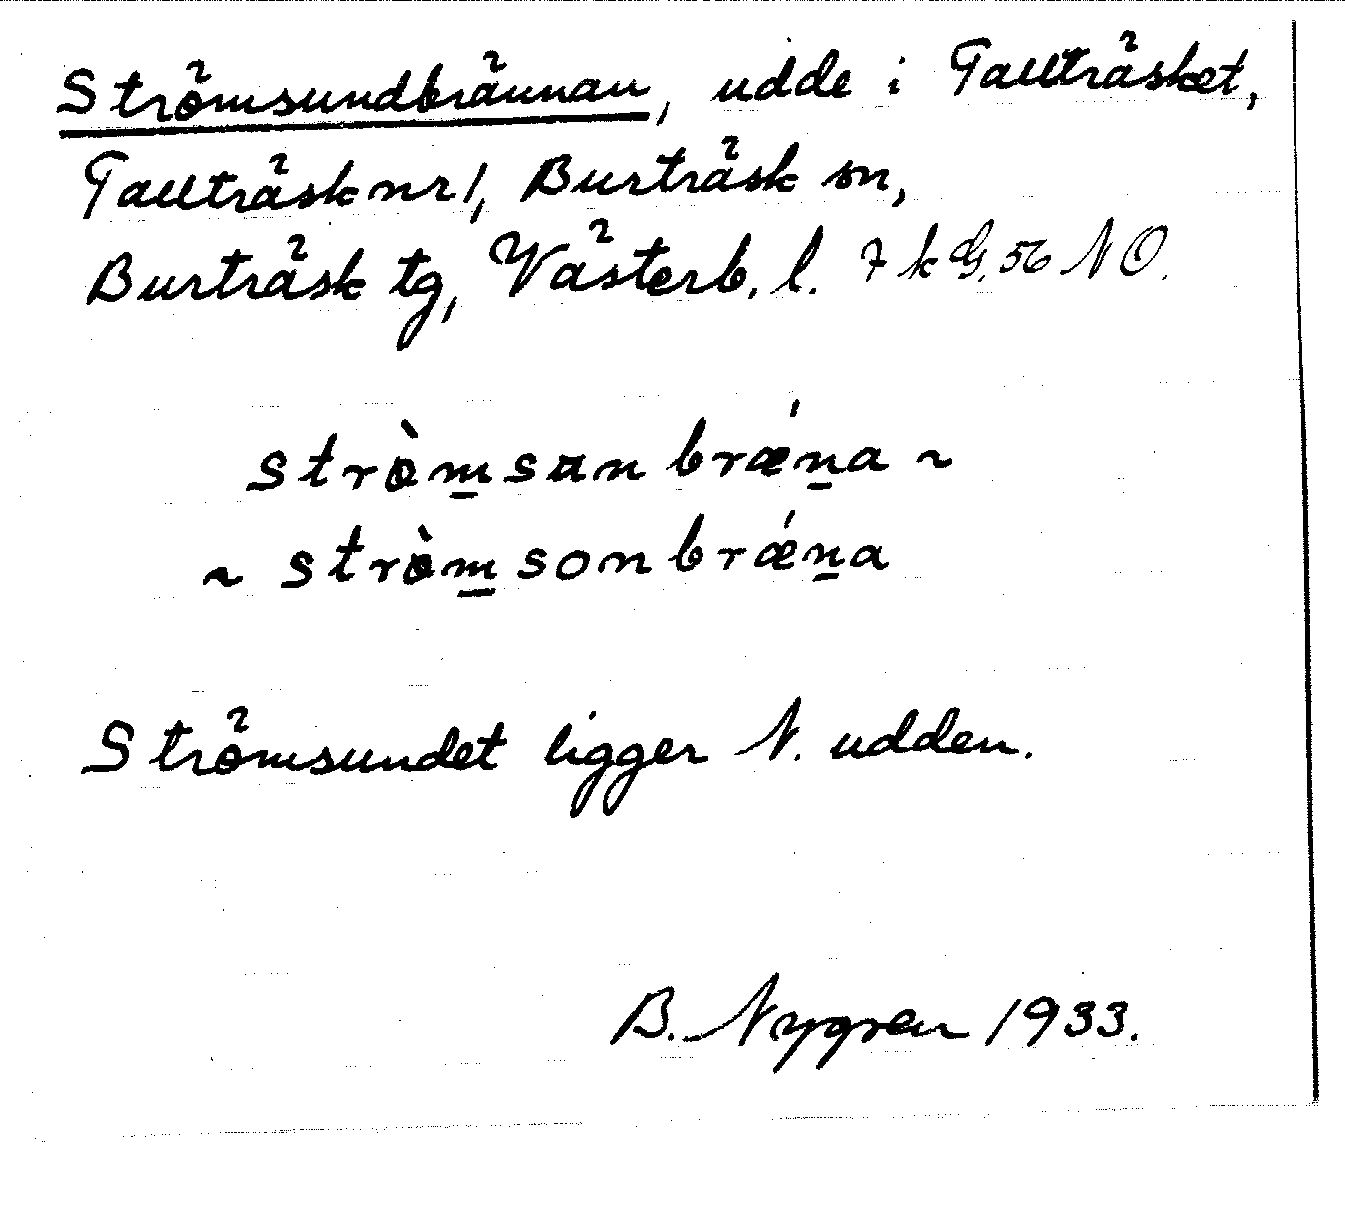 Strömsundbrännan, udde i Tallträsket,
Tallträsk nr 1, Burträsk sn,
Burträsk tg, Västerb. l. 7 k G. 56 NO.
strò̀m̲san brǽn̲a ~
~ strò̀m̲sonbrǽn̲a
Strömsundet ligger N. udden.
B. Nygren 1933.